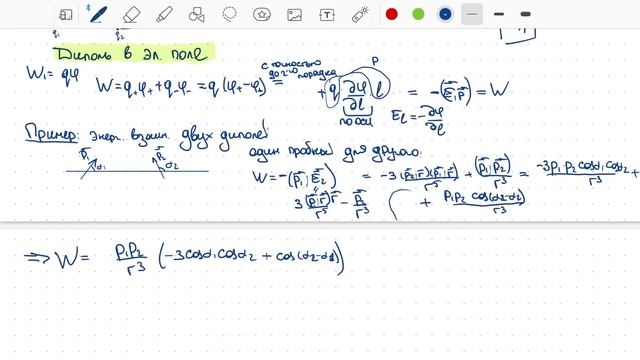 q₁ q₂
Диполь в эл. поле
W₁ = qφ W = q₊φ₊ + q₋φ₋ = q(φ₊ - φ₋) с точностью до 2-го порядка = + q ∂φ/∂l l = -(E⃗, p⃗) = W
P
по оси E_l = -∂φ/∂l
Пример: энерг. взаим. двух диполей
один пробный для другого:
p⃗₁ α₁ p⃗₂ α₂
W = -(p⃗₁, E⃗₂) = -3 (p⃗₂, r⃗)(p⃗₁, r⃗)/r⁵ + (p⃗₁, p⃗₂)/r³ = -3p₁p₂cosα₁cosα₂/r³ +
3(p⃗, r⃗)r⃗/r⁵ - p⃗/r³ + p₁p₂ cos(α₂-α₁)/r³
⇒ W = p₁p₂/r³ (-3cosα₁cosα₂ + cos(α₂-α₁))